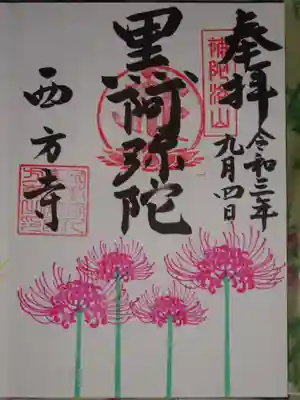 奉拝
令和三年
九月四日
黒阿弥陀
西方寺